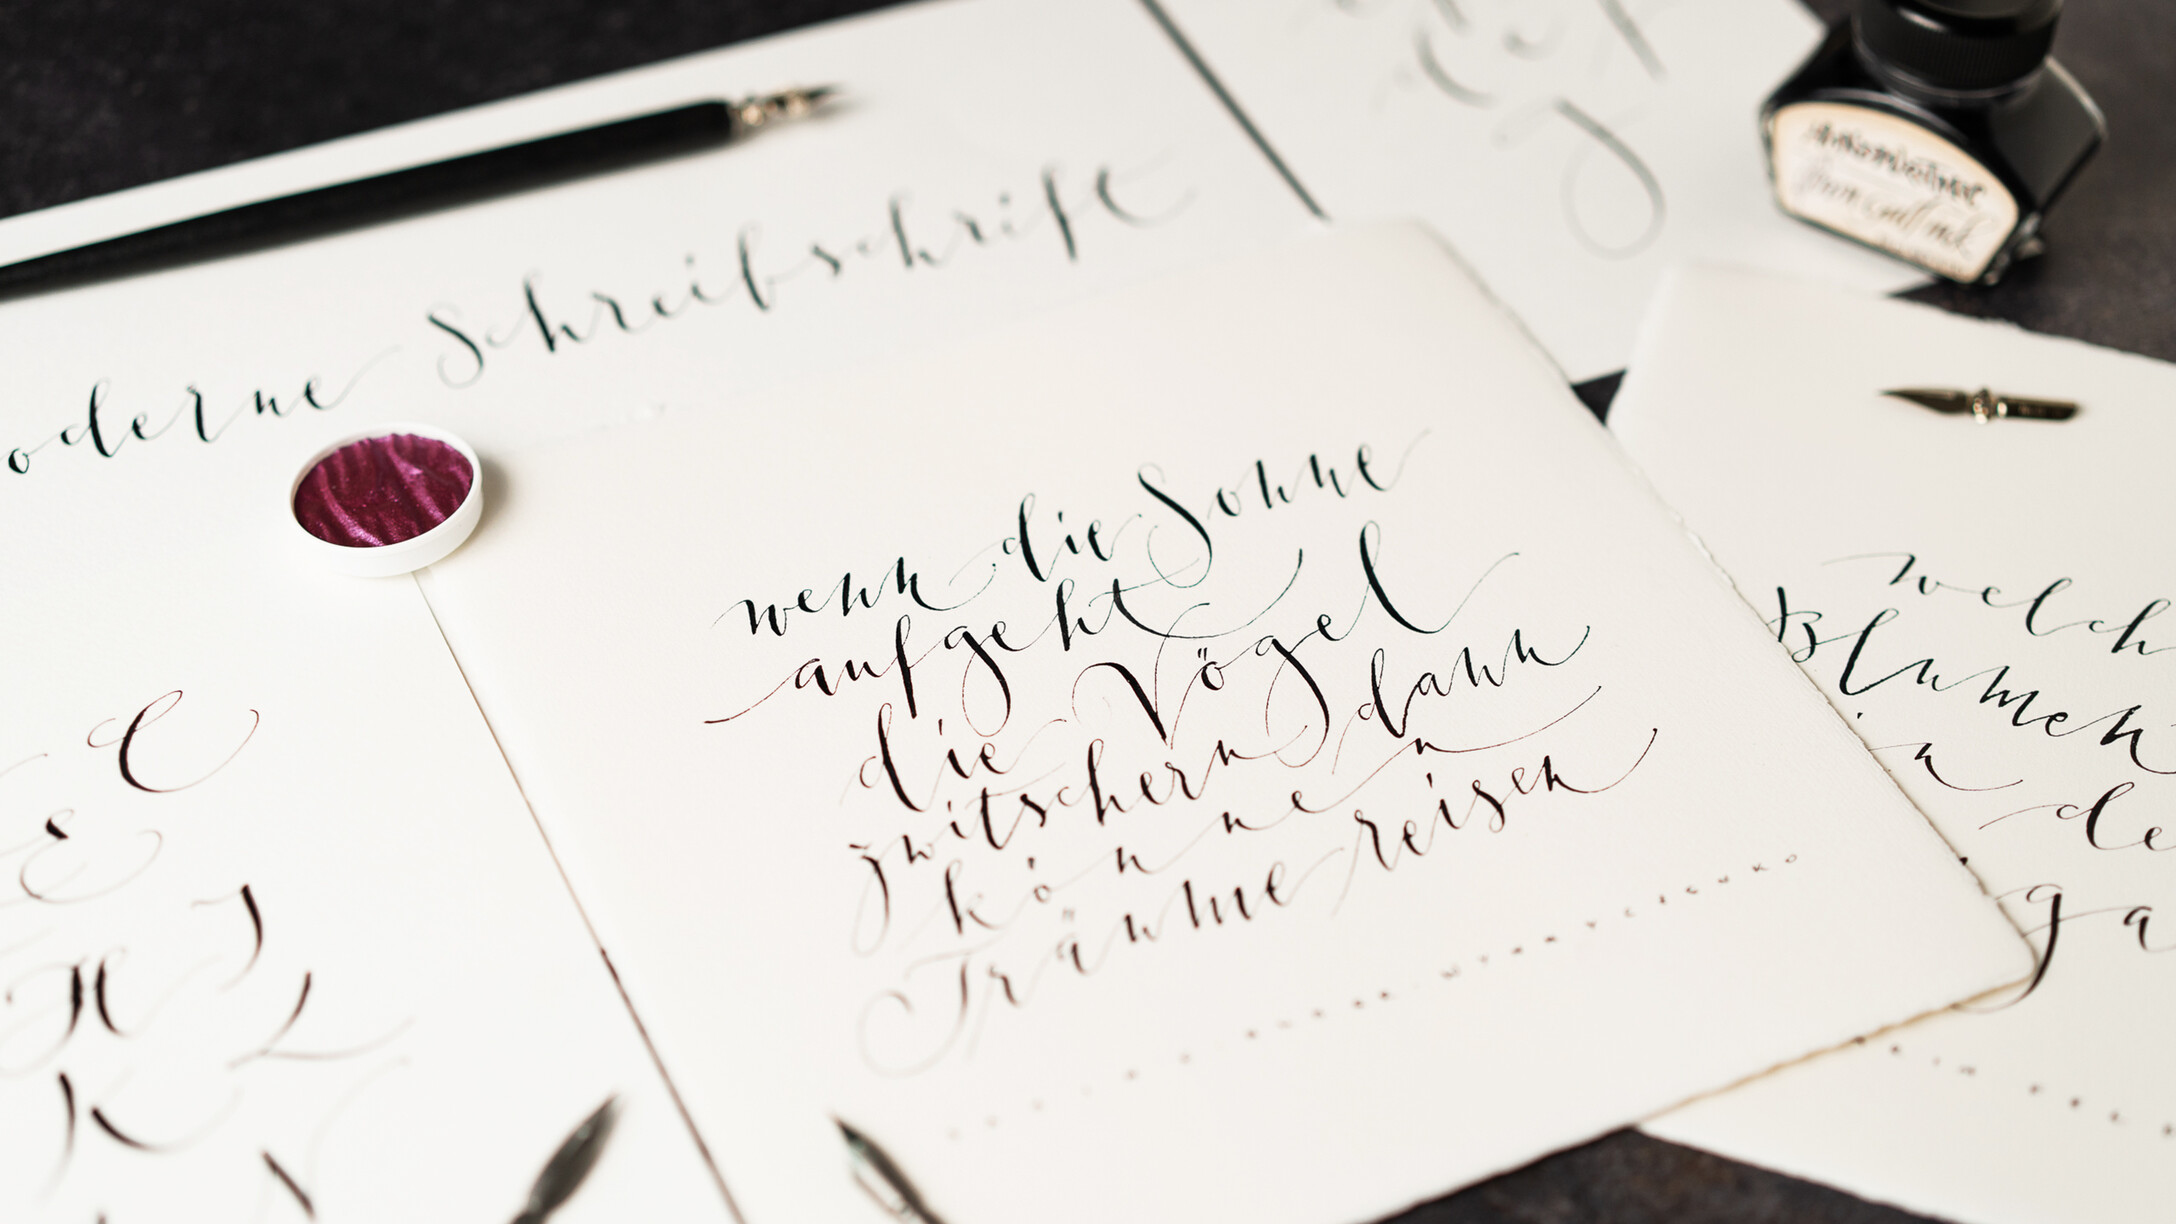 oderne Schreibschrift
wenn die Sonne
aufgeht
die Vögel
zwitschern dann
können
Träume reisen
welch
Blumen
in
de
ga
C
E
J
H
L
K